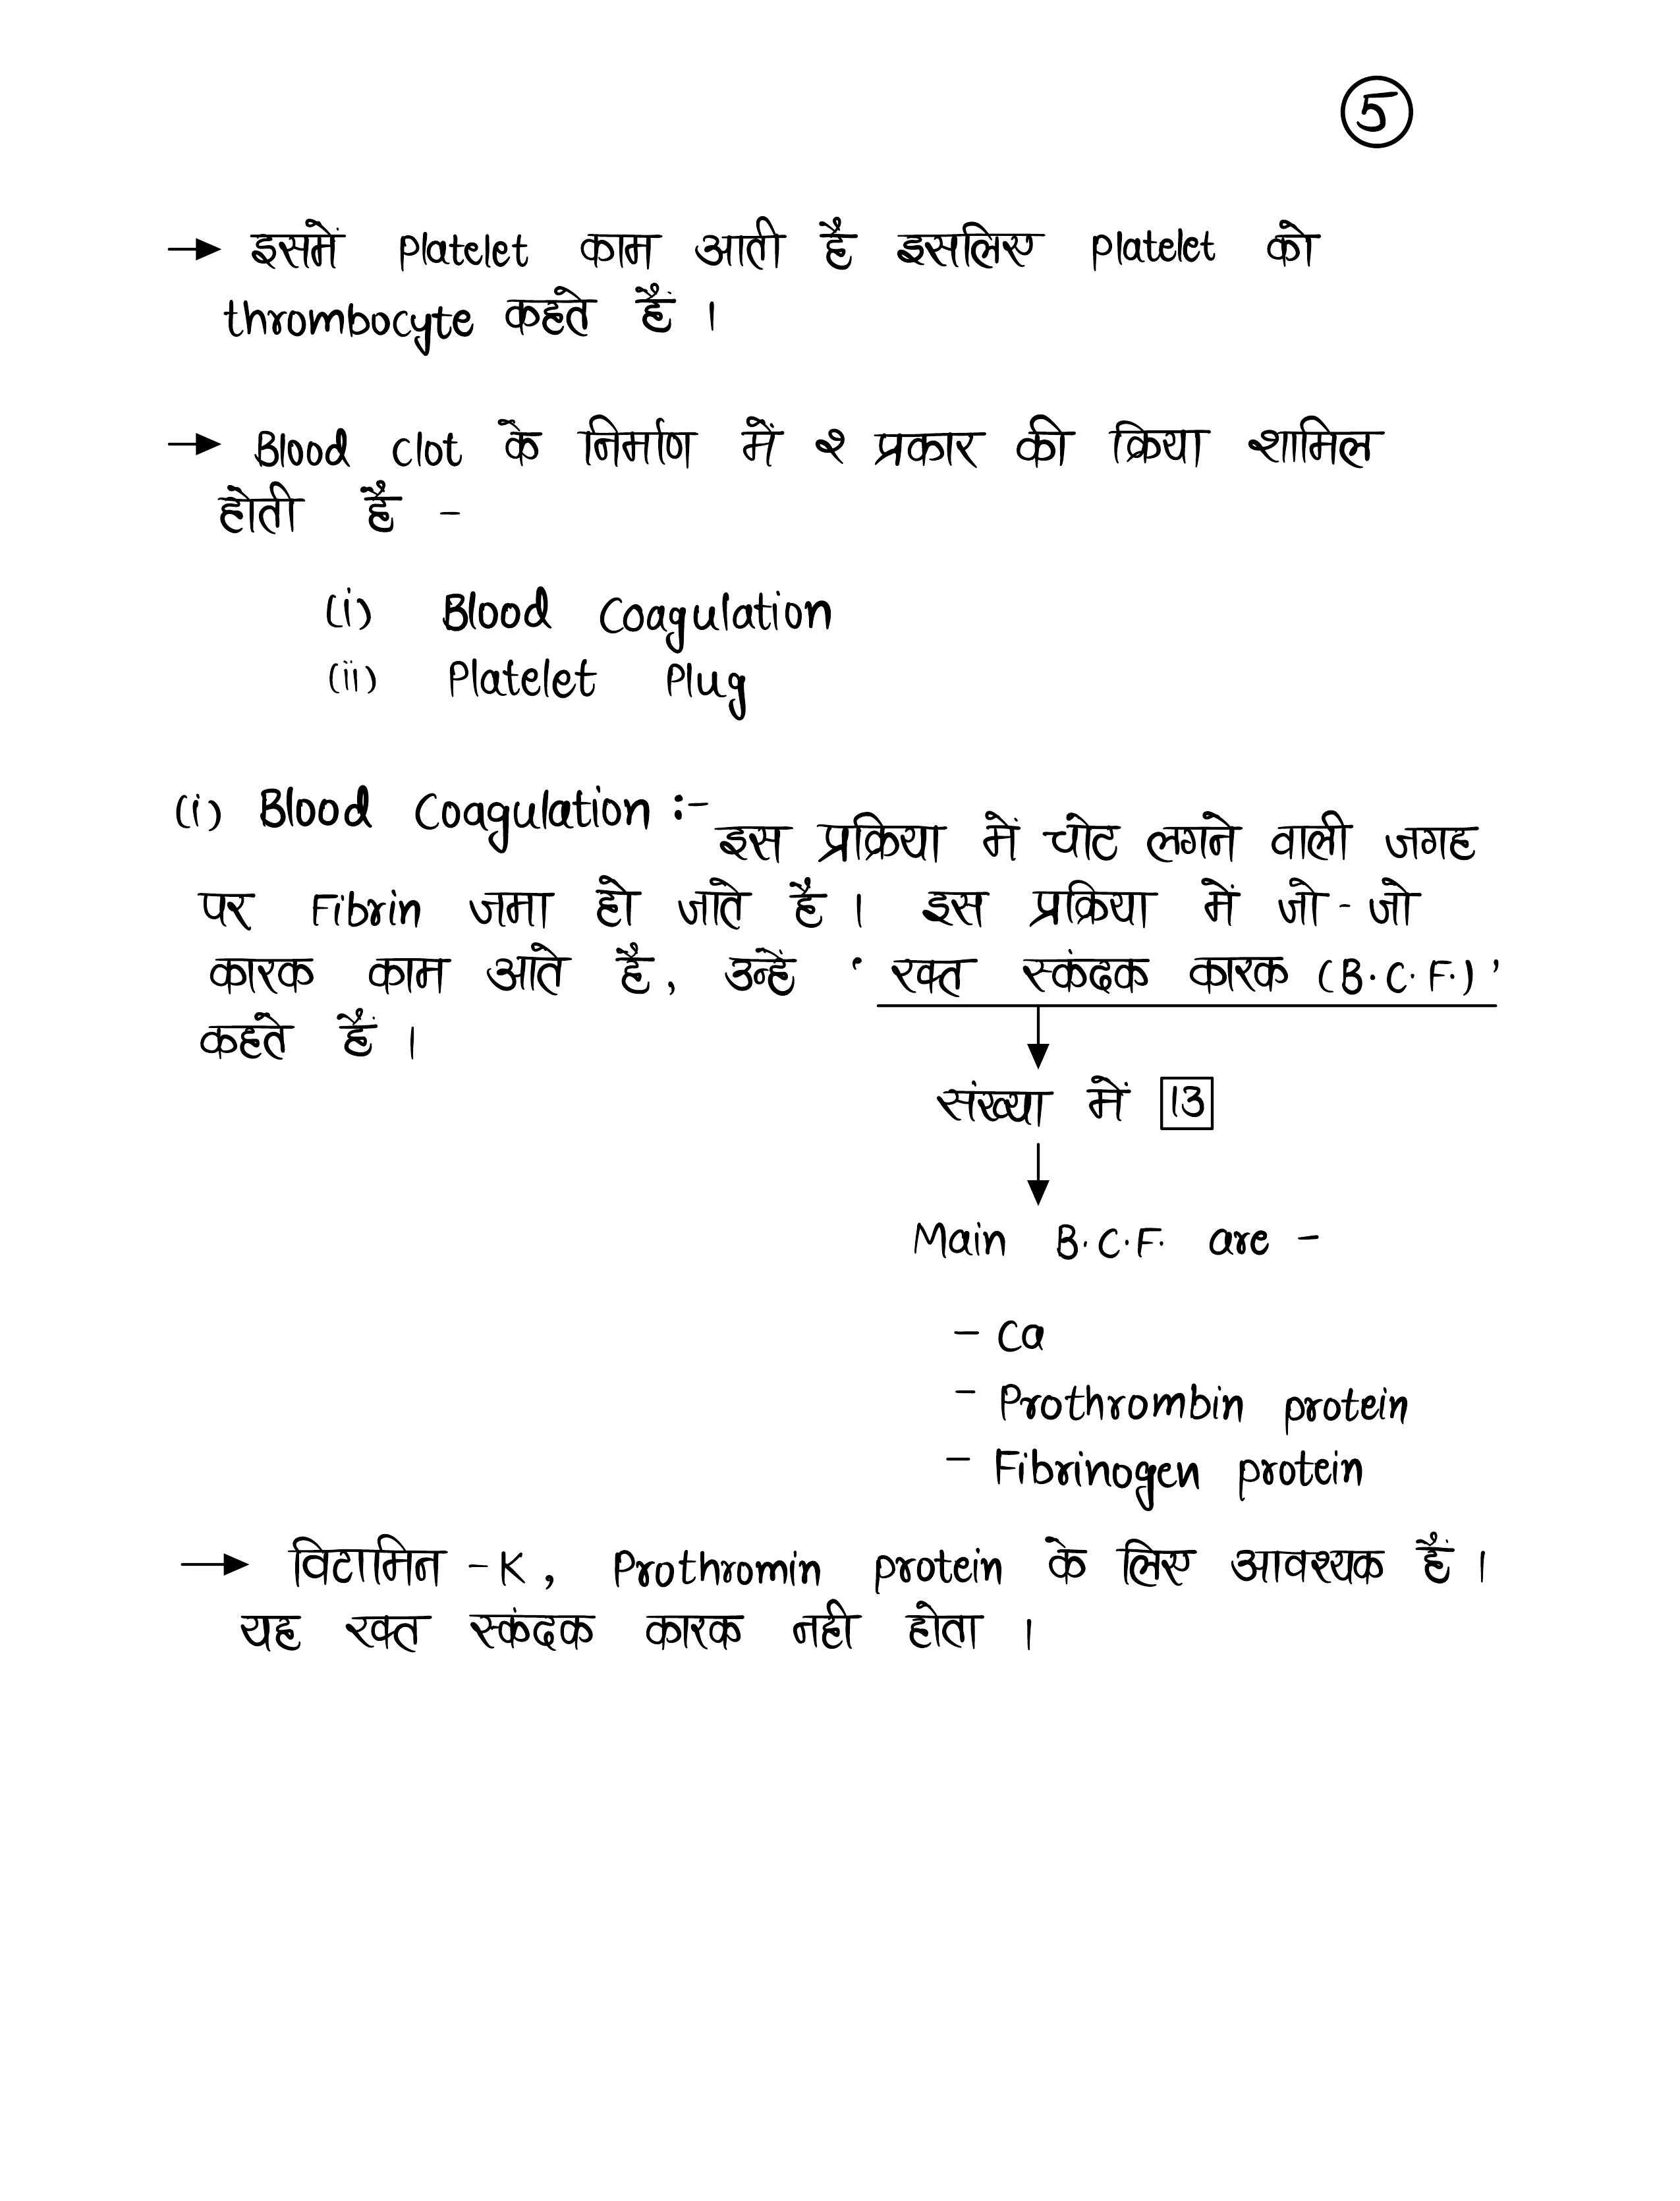 5
→ इसमें Platelet काम आती है इसलिए platelet को
thrombocyte कहते हैं ।
→ Blood clot के निर्माण में २ प्रकार की क्रिया शामिल
होती हैं -
(i) Blood Coagulation
(ii) Platelet Plug
(i) Blood Coagulation :- इस प्रक्रिया में चोट लगने वाली जगह
पर Fibrin जमा हो जाते है । इस प्रक्रिया में जो - जो
कारक काम आते है, उन्हें ' रक्त स्कंदक कारक (B.C.F.) '
कहते हैं ।
संख्या में 13
Main B.C.F. are -
- Ca
- Prothrombin protein
- Fibrinogen protein
→ विटामिन - K, Prothromin protein के लिए आवश्यक हैं ।
यह रक्त स्कंदक कारक नही होता ।